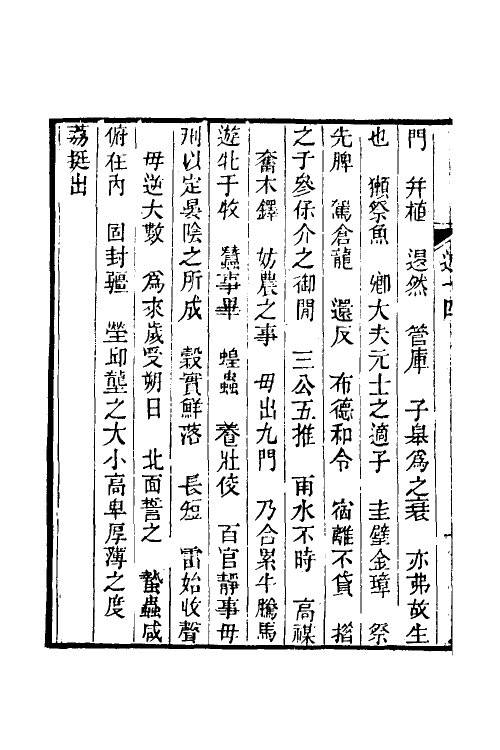 門　幷植　退然　管庫　子皐爲之衰　亦弗故生
也　獺祭魚　卿大夫元士之適子　圭璧金璋　祭
先脾　駕倉龍　還反　布德和令　宿離不貸　揩
之于參保介之御閒　三公五推　雨水不時　高禖
奮木鐸　妨農之事　毋出九門　乃合累牛騰馬
遊牝于牧　蠶事畢　蝗蟲　養壯佼　百官靜事毋
刑以定晏陰之所成　穀實鮮落　長短　雷始收聲
毋逆大數　爲來歲受朔日　北面誓之　蟄蟲咸
俯在內　固封疆　塋邱壟之大小高卑厚薄之度
荔挺出